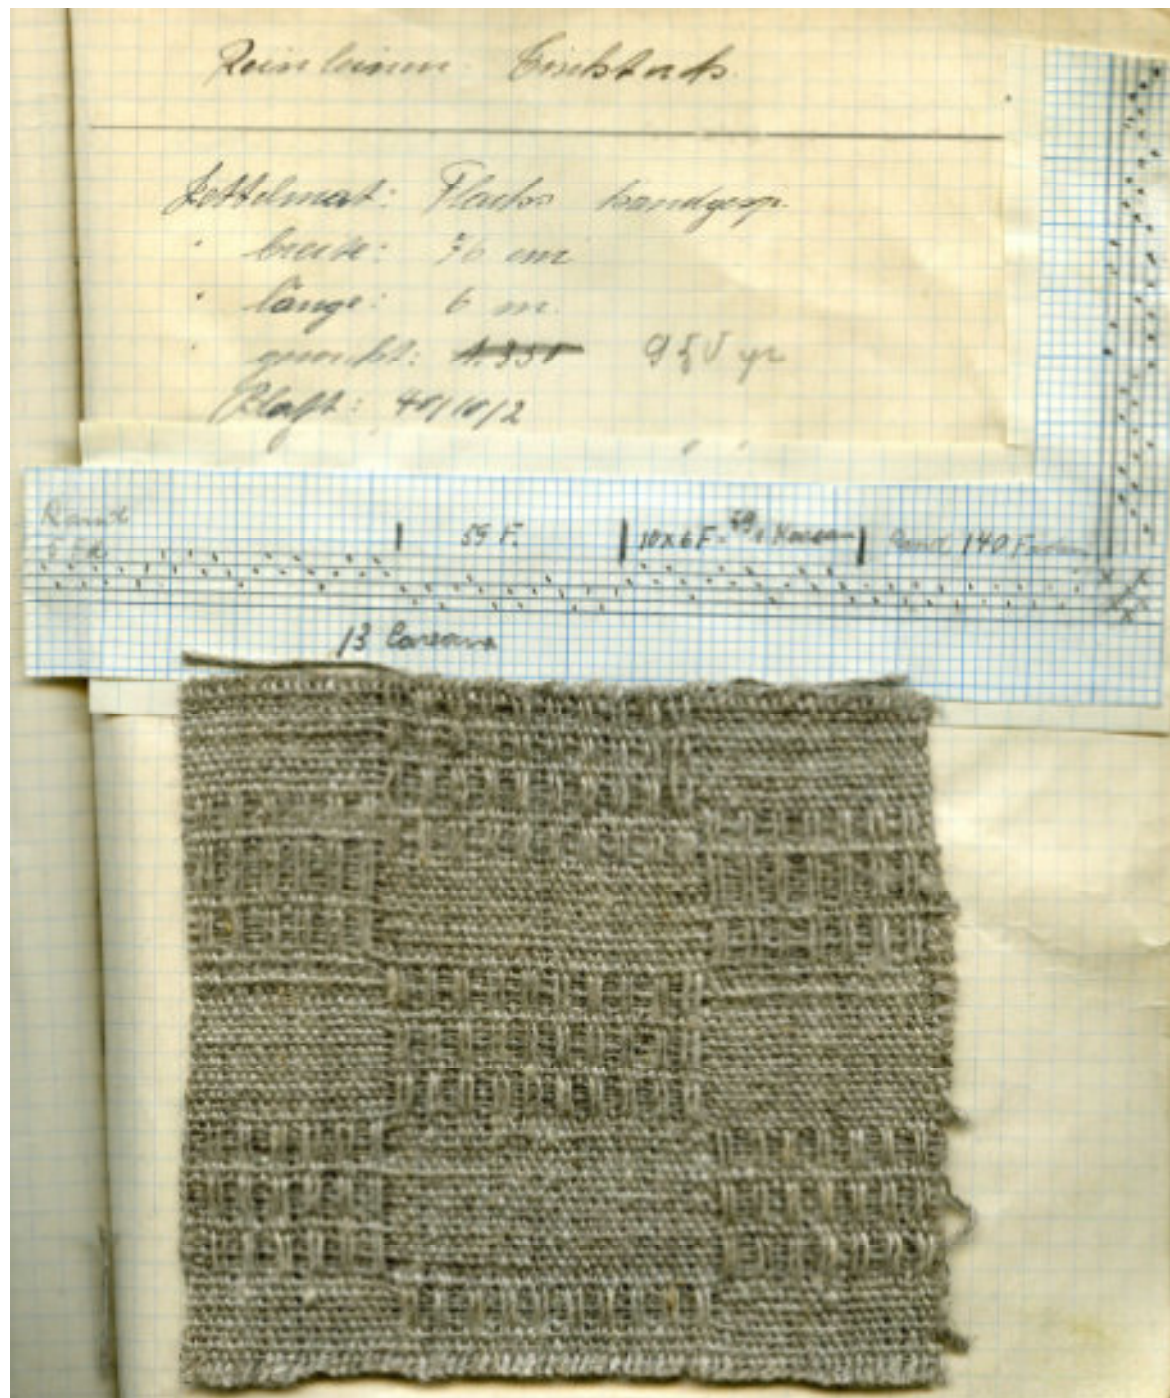 Reinleinen Tischtuch
Zettelmat: Flachs handgesp.
" breite: 76 cm
" länge: 6 m.
" gewicht: gr
Blatt: 40/10/2
Rand
59 F. 10x6 F. Rand 140 Faden
13 Careaux